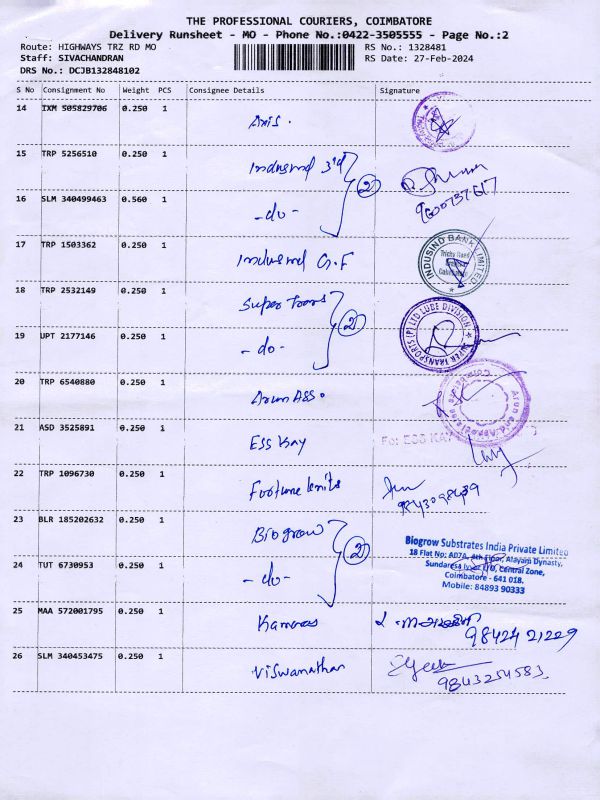 THE PROFESSIONAL COURIERS, COIMBATORE
Delivery Runsheet - MO - Phone No.:0422-3505555 - Page No.:2
Route: HIGHWAYS TRZ RD MO RS No.: 1328481
Staff: SIVACHANDRAN RS Date: 27-Feb-2024
DRS No.: DCJB132848102
S No Consignment No Weight PCS Consignee Details Signature
14 IXM 505829706 0.250 1 Axis.
15 TRP 5256510 0.250 1 Indusind 3rd
16 SLM 340499463 0.560 1 -do- 2
17 TRP 1503362 0.250 1 Indusind G.F INDUSIND BANK LIMITED
18 TRP 2532149 0.250 1 Super trans
19 UPT 2177146 0.250 1 -do- 2 LUBE DIVISION
20 TRP 6540880 0.250 1 Arun Asso.
21 ASD 3525891 0.250 1 Ess Kay For ESS KAY
22 TRP 1096730 0.250 1 Fortune knits
23 BLR 185202632 0.250 1 Biogrow
Biogrow Substrates India Private Limited
18 Flat No: AD7A, 4th Floor, Alayam Dynasty,
24 TUT 6730953 0.250 1 -do- 2
Central Zone,
Coimbatore - 641 018.
Mobile: 84893 90333
25 MAA 572001795 0.250 1
98424 21229
26 SLM 340453475 0.250 1 Viswanathan
9843254583